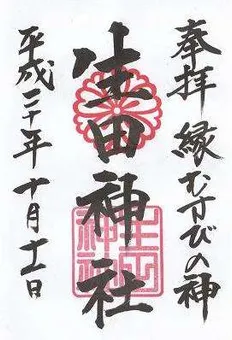 奉拝 縁むすびの神
生田神社
平成二十年十月十一日
生田神社